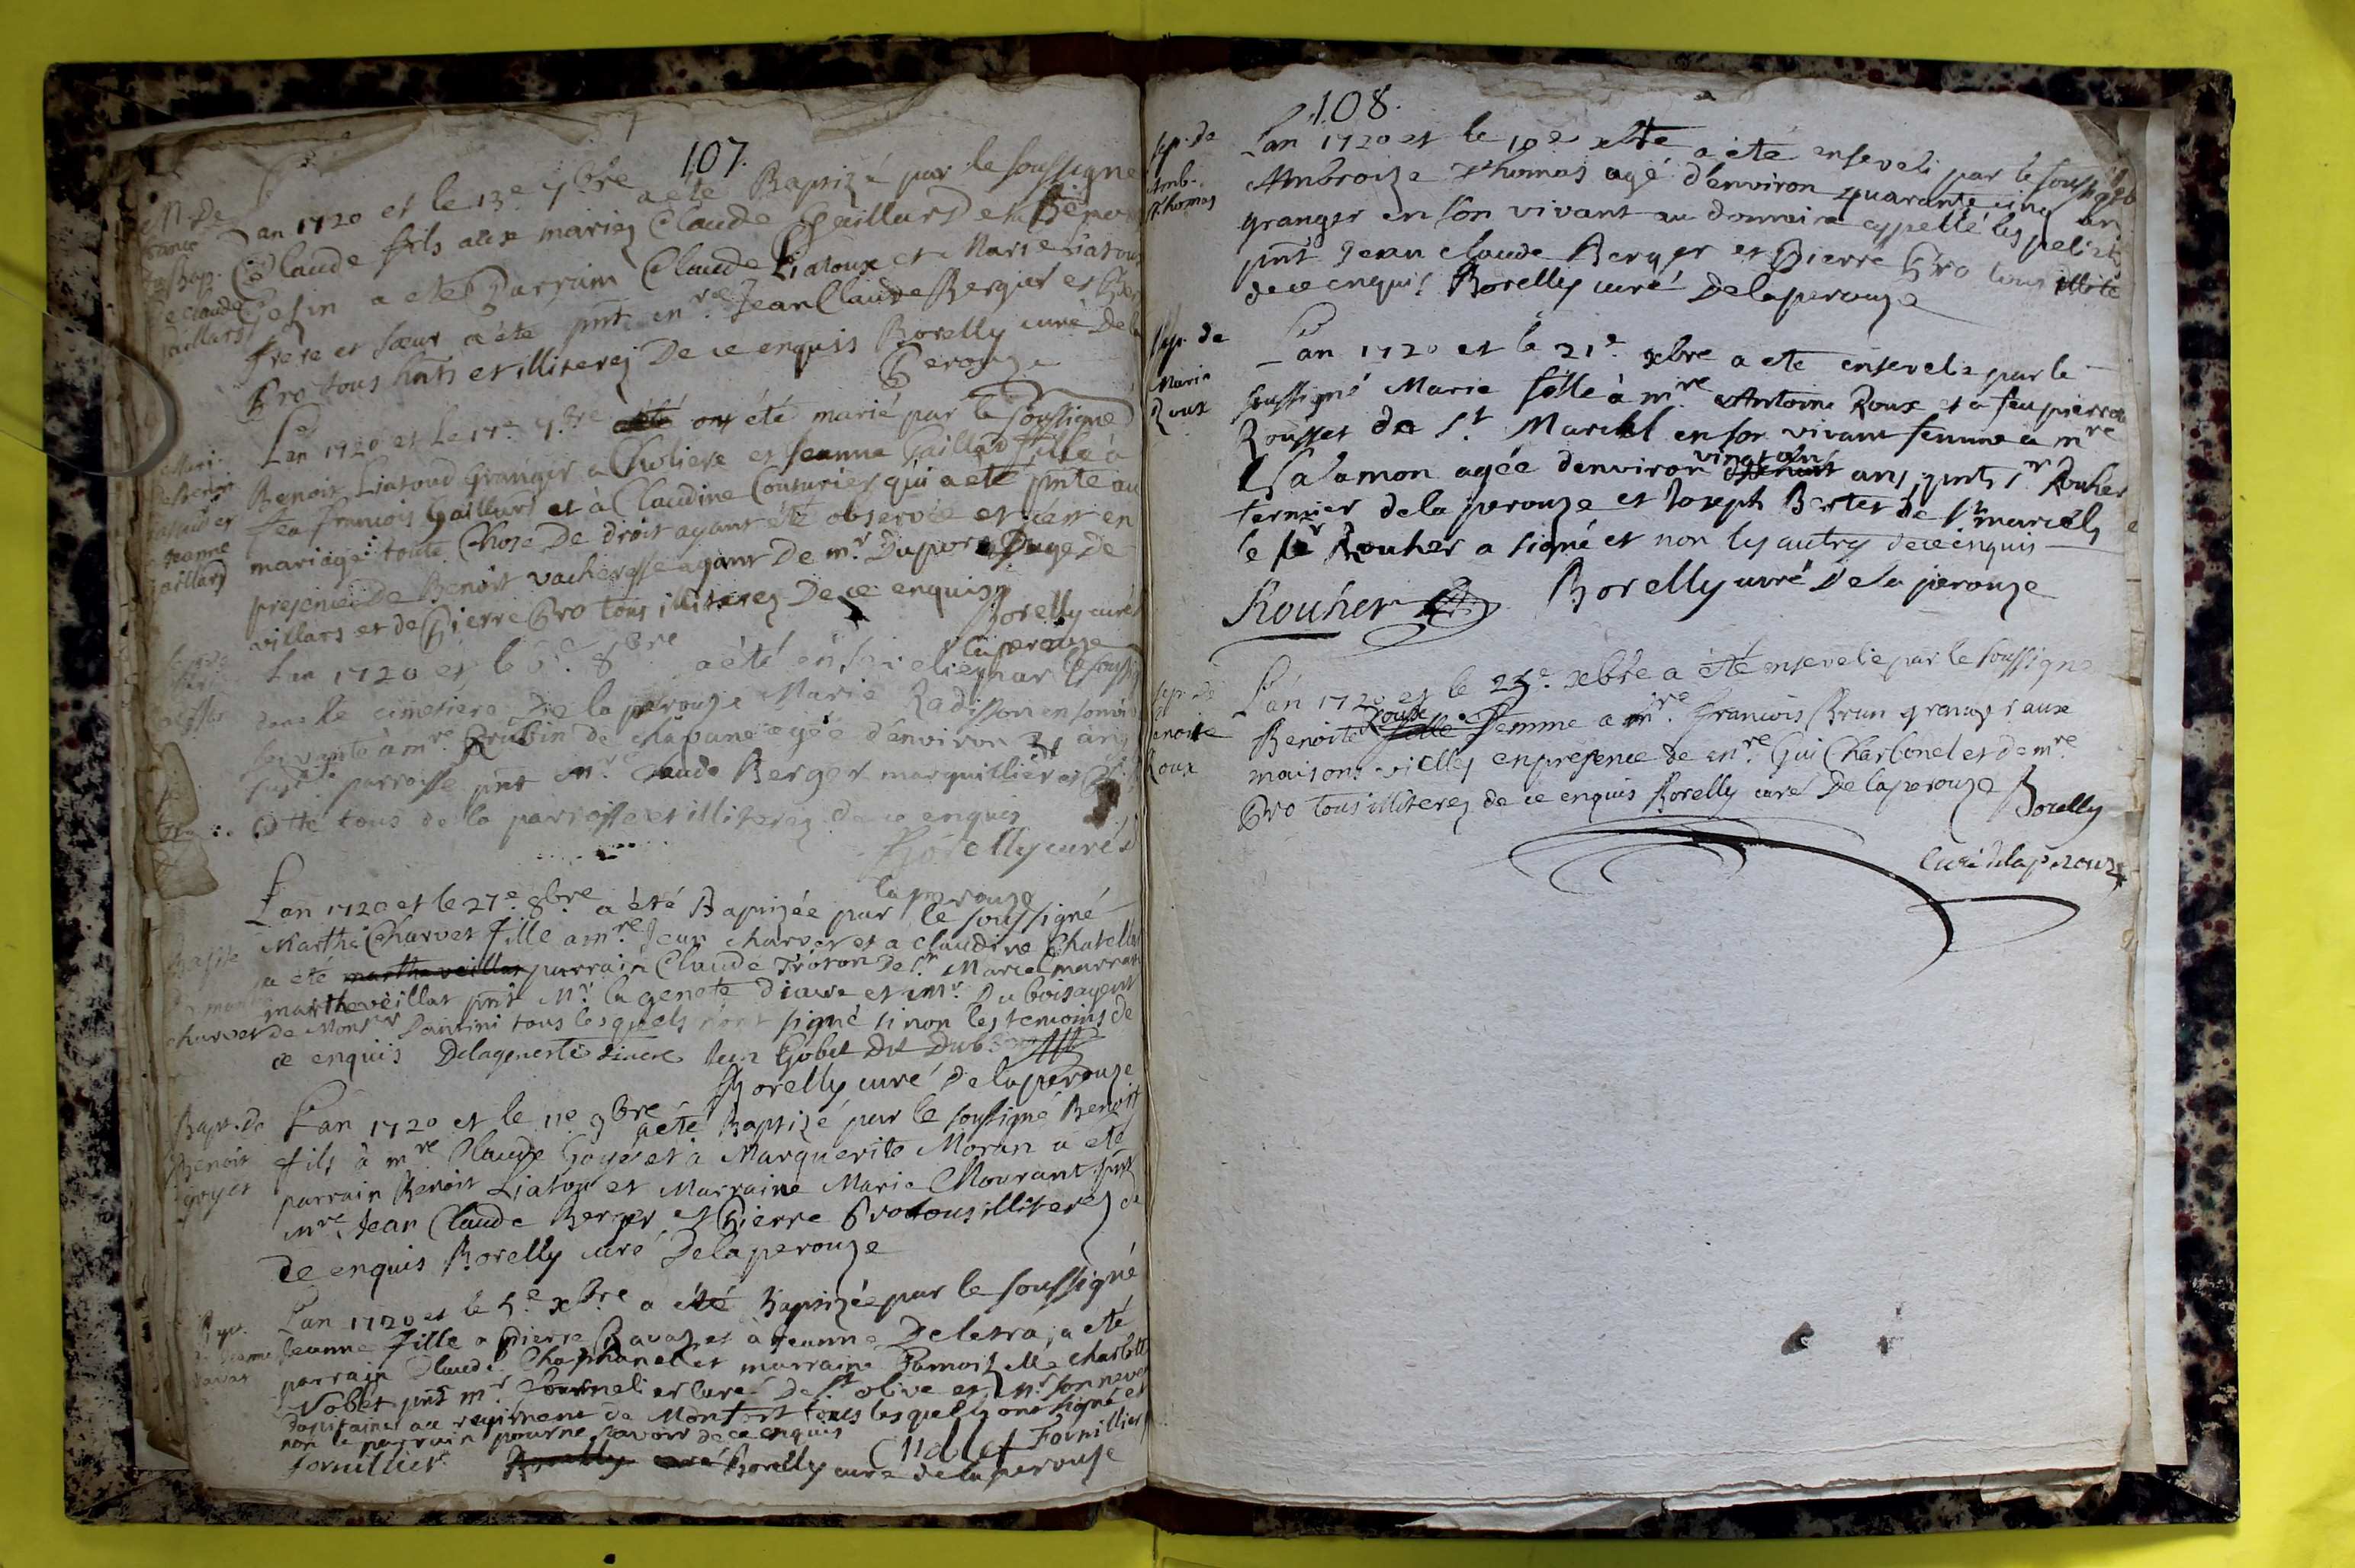 107.
Lan 1720 et le 13e 7bre a eté Baptizé par le soussigné
Claude fils aux mariez Claude Gaillard et a Benoi
a eté Parrain Claude Liatoux et Marie Liatoux
frere et sœur a été pnt mre Jean Claude Berger et
Bro tous et illiterez De ce enquis Borelly curé Dela
Perouze
Mari.
Lan 1720 et Le 17e 7bre ont été marié par le soussigné
Benoit Liatoud Granger a Choliere et Jeanne Gaillard fille à
Jeanne
gaillard
feu francois Gaillard et à Claudine Couturier qui a eté pnte au
mariage toute Chose De droit ayant été observée et c'est en
presence De Benoit vacheresse agent De mr Duport Juge De
villars et de Pierre Bro tous illiterez De ce enquis
Borelly curé
laperouze
Lan 1720 et le 6e 8bre a été ensevelie par le soussig
dans le cimetiere De la perouze Marie Radisson en son vi
servante à mre Rrubin de agée d'environ ans
susde parroisse pnt mre Claude Berger marguillier et
tous de la parroisse et illiterez de ce enquis
Borelly curé d
laperouze
Lan 1720 et le 27e 8bre a été Baptizée par le soussigné
Bapte
Marthe Charvet fille a mre Jean charvet et a claudine Chatellar
a eté martha veillat parrain Claude Troton De St Marcel marrain
charvet
martheveillat pnt Mr la genete Diacre et Mr Du bois agent
de Monsr Dantini tous lesquels n'ont signé si non les temoins de
ce enquis Delagenette diacre Jean Gobet Dit Dubois
Borelly curé Delaperouze
Bapt. De
Benoit
goyet
Lan 1720 et le 11e 9bre a eté Baptizé par le soussigné Benoit
fils à mre Claude Goyet et à Marguerite Moran a eté
parrain Benoit Liatou et Marraine Marie Mourant pnt
mre Jean Claude Berger et Pierre Bro tous illiterez de
De enquis Borelly curé Delaperouze
Bapt.
de Jeanne
Lan 1720 et le 5e xbre a été Baptizée par le soussigné
Jeanne fille a Pierre Ravaz et à Jeanne Deletra, a eté
parrain Claude Chaphanel et marraine Damoizelle charlotte
Noblet pnt mr fournelier curé De St olive et Mr son neveu
Capitaine au regiment de Montfort tous lesquels ont signé et
non le parrain pour ne savoir de ce enquis
fornillier Borelly curé Borelly curé delaperouse
CNoblet Fornillier
108.
sep. de
Amb.
Thomas
Lan 1720 et le 10e xbre a été enseveli par le soussigné
Ambroize Thomas agé d'environ quarante cinq an
granger en son vivant au domaine appellé les pelizt
pnt Jean Claude Berger et Pierre Bro tous illite
de ce enquis Borelly curé Delaperouze
Sep. de
Marie
Roux
Lan 1720 et le 21e xbre a eté ensevelie par le
soussigné Marie fille à mre Antoine Roux et a feu pierrette
Rousset de St Marcel en son vivant femme a mre
Salamon agée denviron vingt un ans, pnts Sr Rouher
fermier de la perouze et Joseph Bertet de St marcel
le sr Rouher a signé et non les autres de ce enquis
Rouher Borelly curé Delaperouze
Sep. de
Benoite
Roux
Lan 1720 et le 25e xbre a été ensevelie par le soussigné
Benoite Roux fille femme a mre francois Brun granger aux
maisons vielles en presence de mre Gui Charbonel et de mre
Bro tous illiterez de ce enquis Borelly curé Delaperouze
Borelly
Curé delaperouze